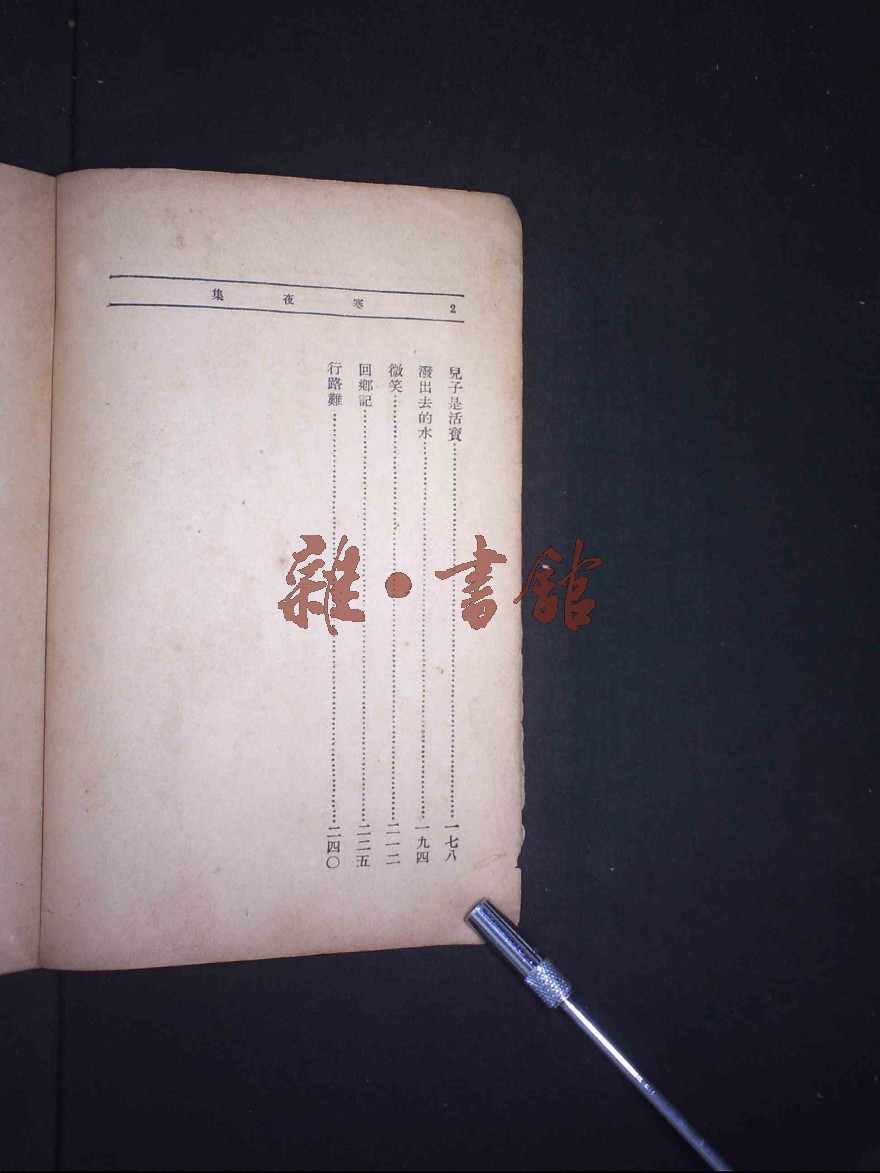 2 寒夜集
兒子是活寶……一七八
潑出去的水……一九四
微笑……二一二
回鄉記……二二五
行路難……二四〇
雜·書館